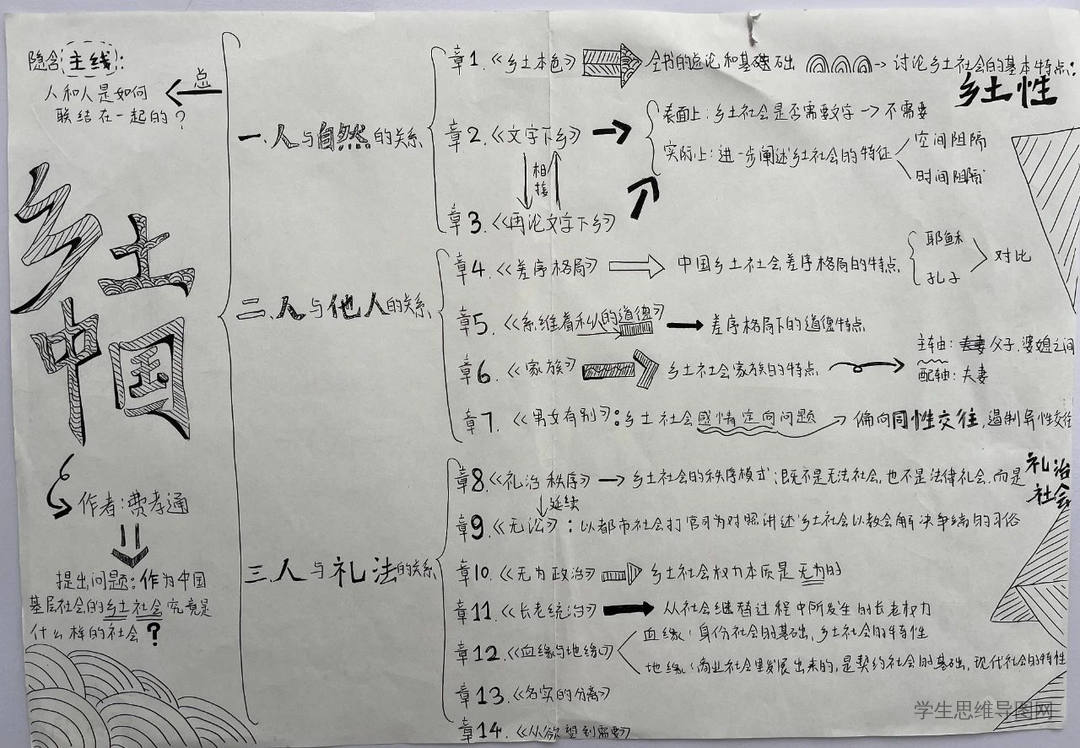 隐含主线：
点
人和人是如何
联结在一起的？
乡土
中国
作者：费孝通
提出问题：作为中国
基层社会的乡土社会究竟是
什么样的社会？
一.人与自然的关系
章1.《乡土本色》 全书的总论和基础 讨论乡土社会的基本特点：
乡土性
章2.《文字下乡》
表面上：乡土社会是否需要文字→不需要
实际上：进一步阐述乡土社会的特征
空间阻隔
时间阻隔
相
接
章3.《再论文字下乡》
二.人与他人的关系
章4.《差序格局》 中国乡土社会差序格局的特点
耶稣
孔子
对比
章5.《系维着私人的道德》 差序格局下的道德特点
章6.《家族》 乡土社会家族的特点
主轴：父子.婆媳之间
配轴：夫妻
章7.《男女有别》：乡土社会感情定向问题 偏向同性交往，遏制异性交往
三.人与礼法的关系
章8.《礼治秩序》→乡土社会的秩序模式：既不是无法社会，也不是法律礼会.而是
礼治
社会
延续
章9.《无讼》：以都市社会打官司为对照讲述乡土社会以教会解决争端的习俗
章10.《无为政治》 乡土社会权力本质是无为的
章11.《长老统治》 从社会继替过程中所发生的长老权力
章12.《血缘与地缘》
血缘：身份社会的基础，乡土社会的特性
地缘：商业社会里发展出来的，是契约社会的基础，现代社会的特性
章13.《名实的分离》
章14.《从欲望到需要》
学生思维导图网